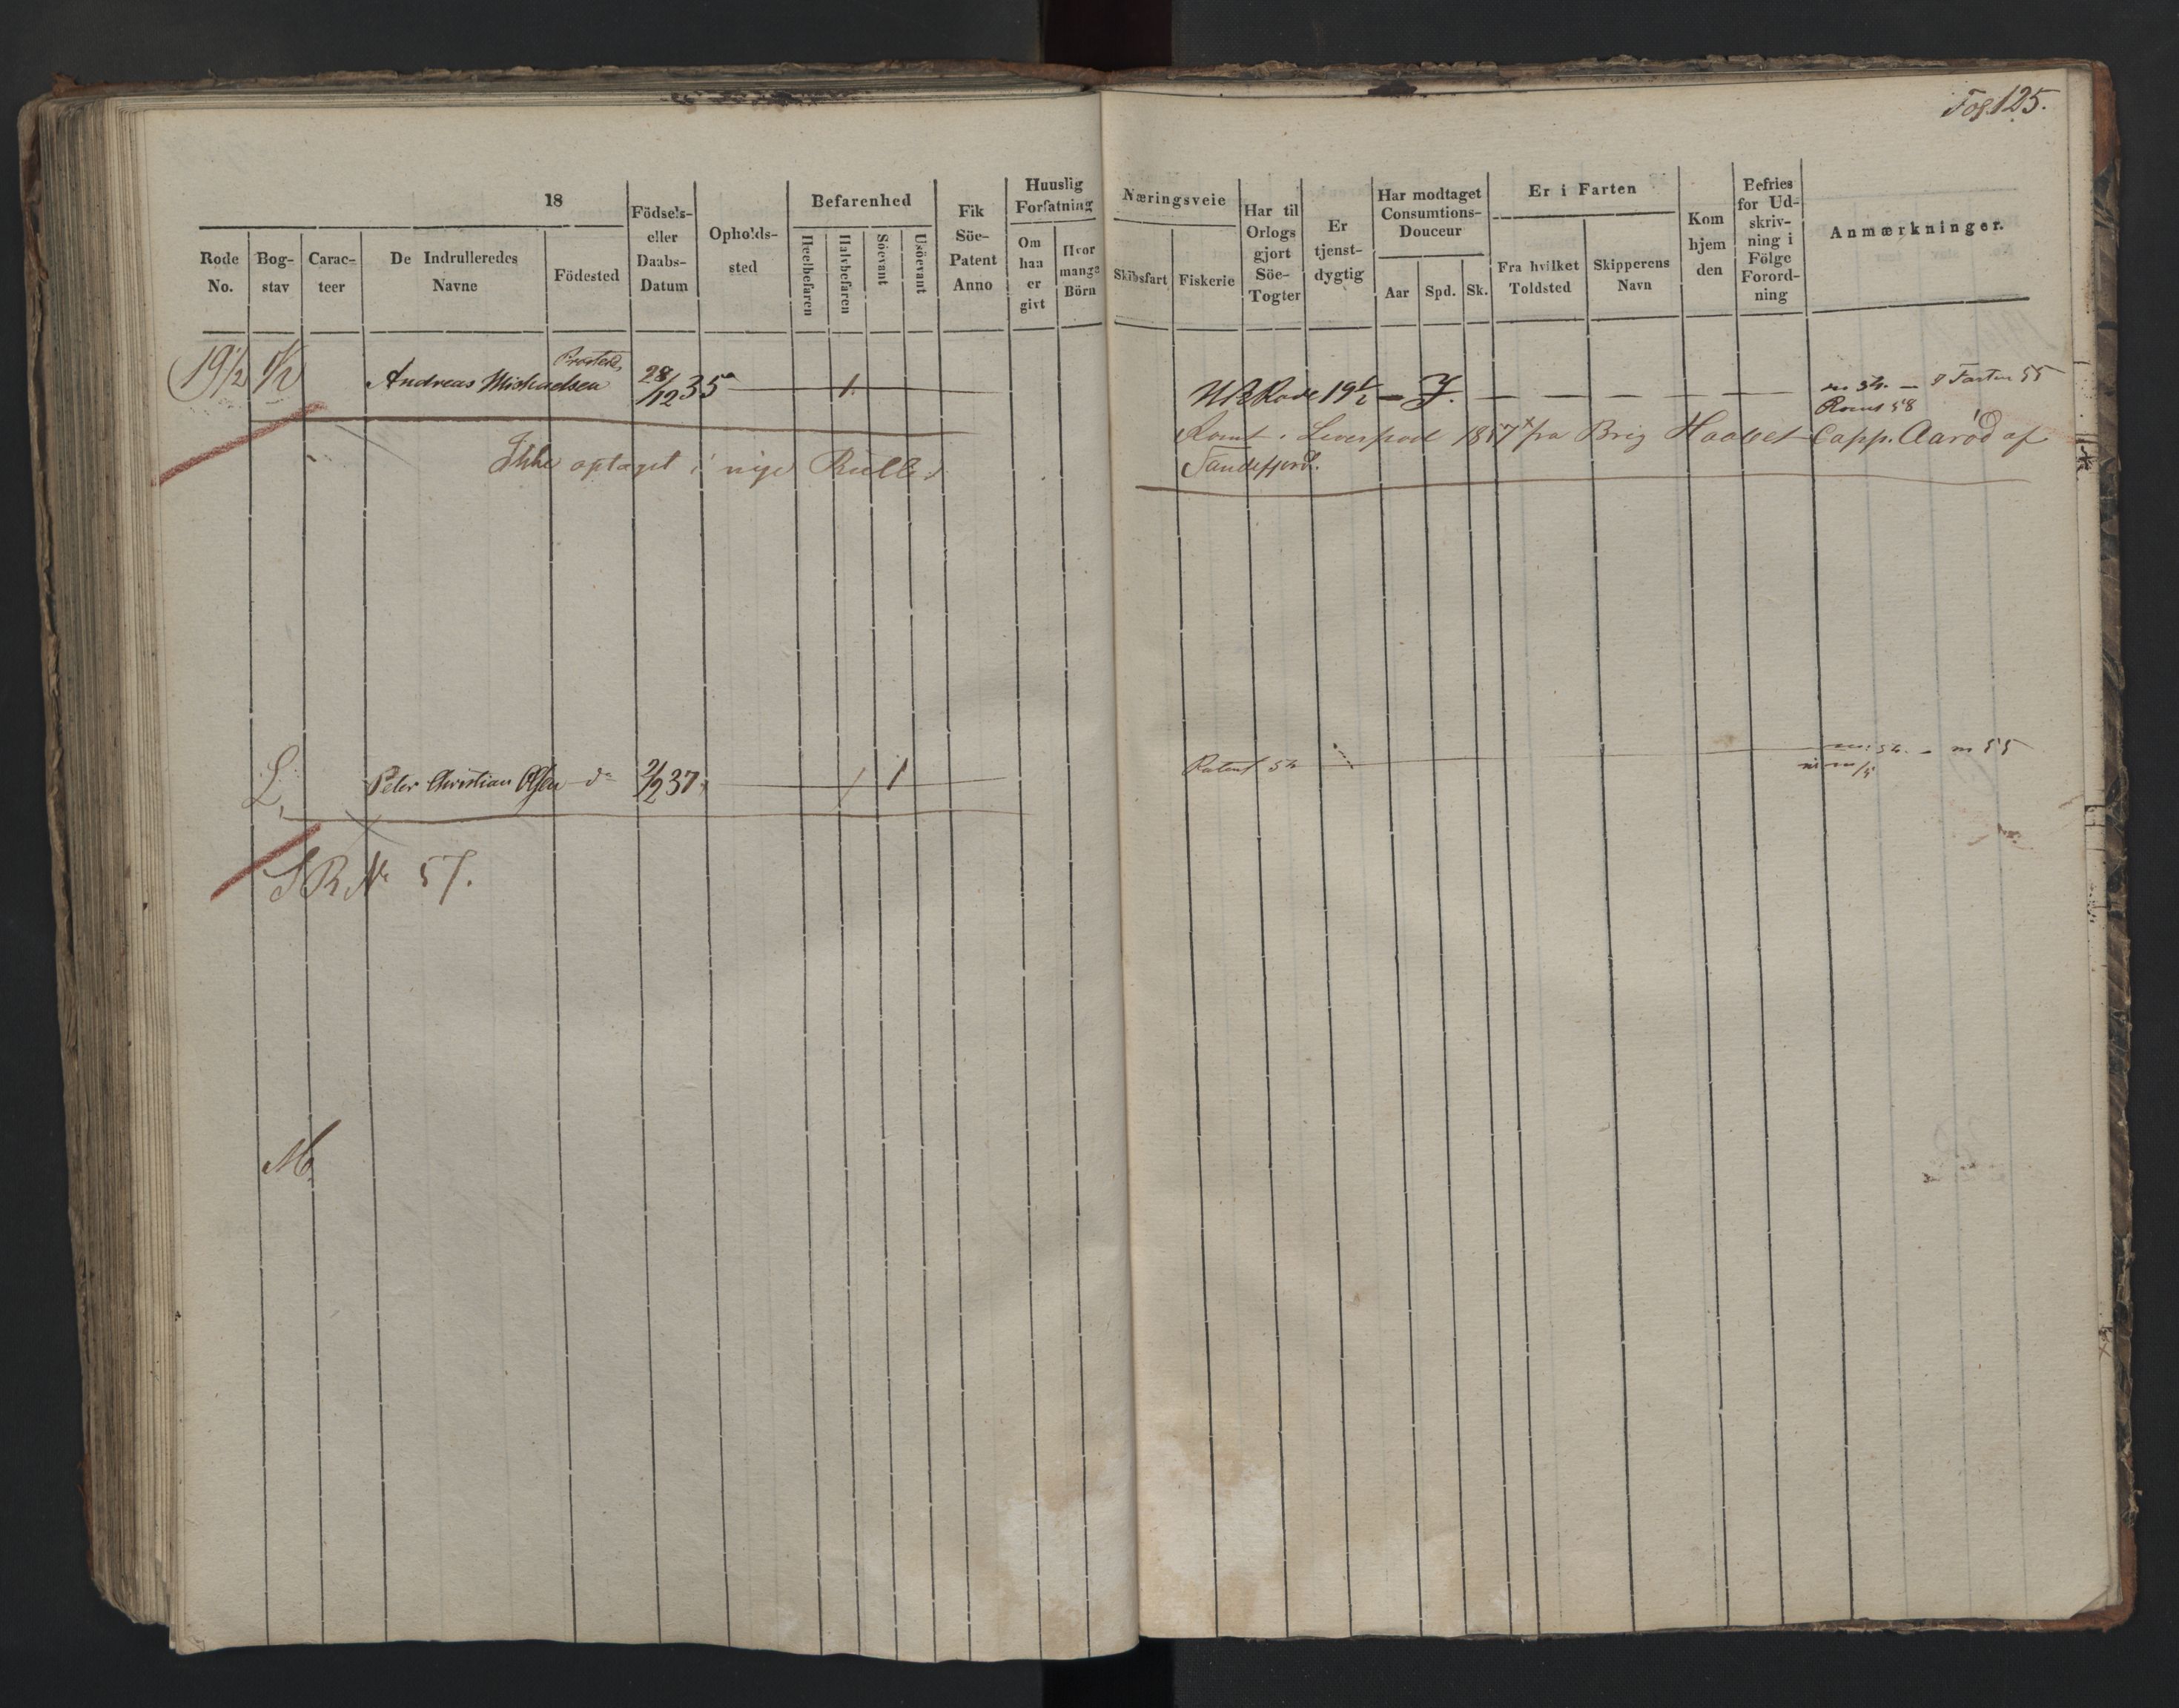 Fog. 125.
18
Rode No.
Bog-stav
Carac-teer
De Indrulleredes Navne
Födested
Födsels- eller Daabs-Datum
Opholds-sted
Befarenhed
Heelbefaren
Halvbefaren
Söevant
Usöevant
Fik Söe-Patent Anno
Huuslig Forfatning
Om han er givt
Hvor mange Börn
Næringsveie
Skibsfart
Fiskerie
Har til Orlogs gjort Söe-Togter
Er tjenst-dygtig
Har modtaget Consumtions-Douceur
Aar
Spd.
Sk.
Er i Farten
Fra hvilket Toldsted
Skipperens Navn
Kom hjem den
Befries for Ud-skriv-ning i Fölge Forord-ning
Anmærkninger.
19½ K/2 Andreas Michaelsen 28/12 35 1
Rode 19½ — — — — 54. — i Farten 55
Romt 58
Ikke optaget i nye Rulle.
Romt i Liverpool 1857 fra Brig Haabet Capp. Aaröd af
Sandefjord.
L, Peter Christian Olsen do 2/2 37 1 1
Patent 54 54. — 55
S R No 57.
M.